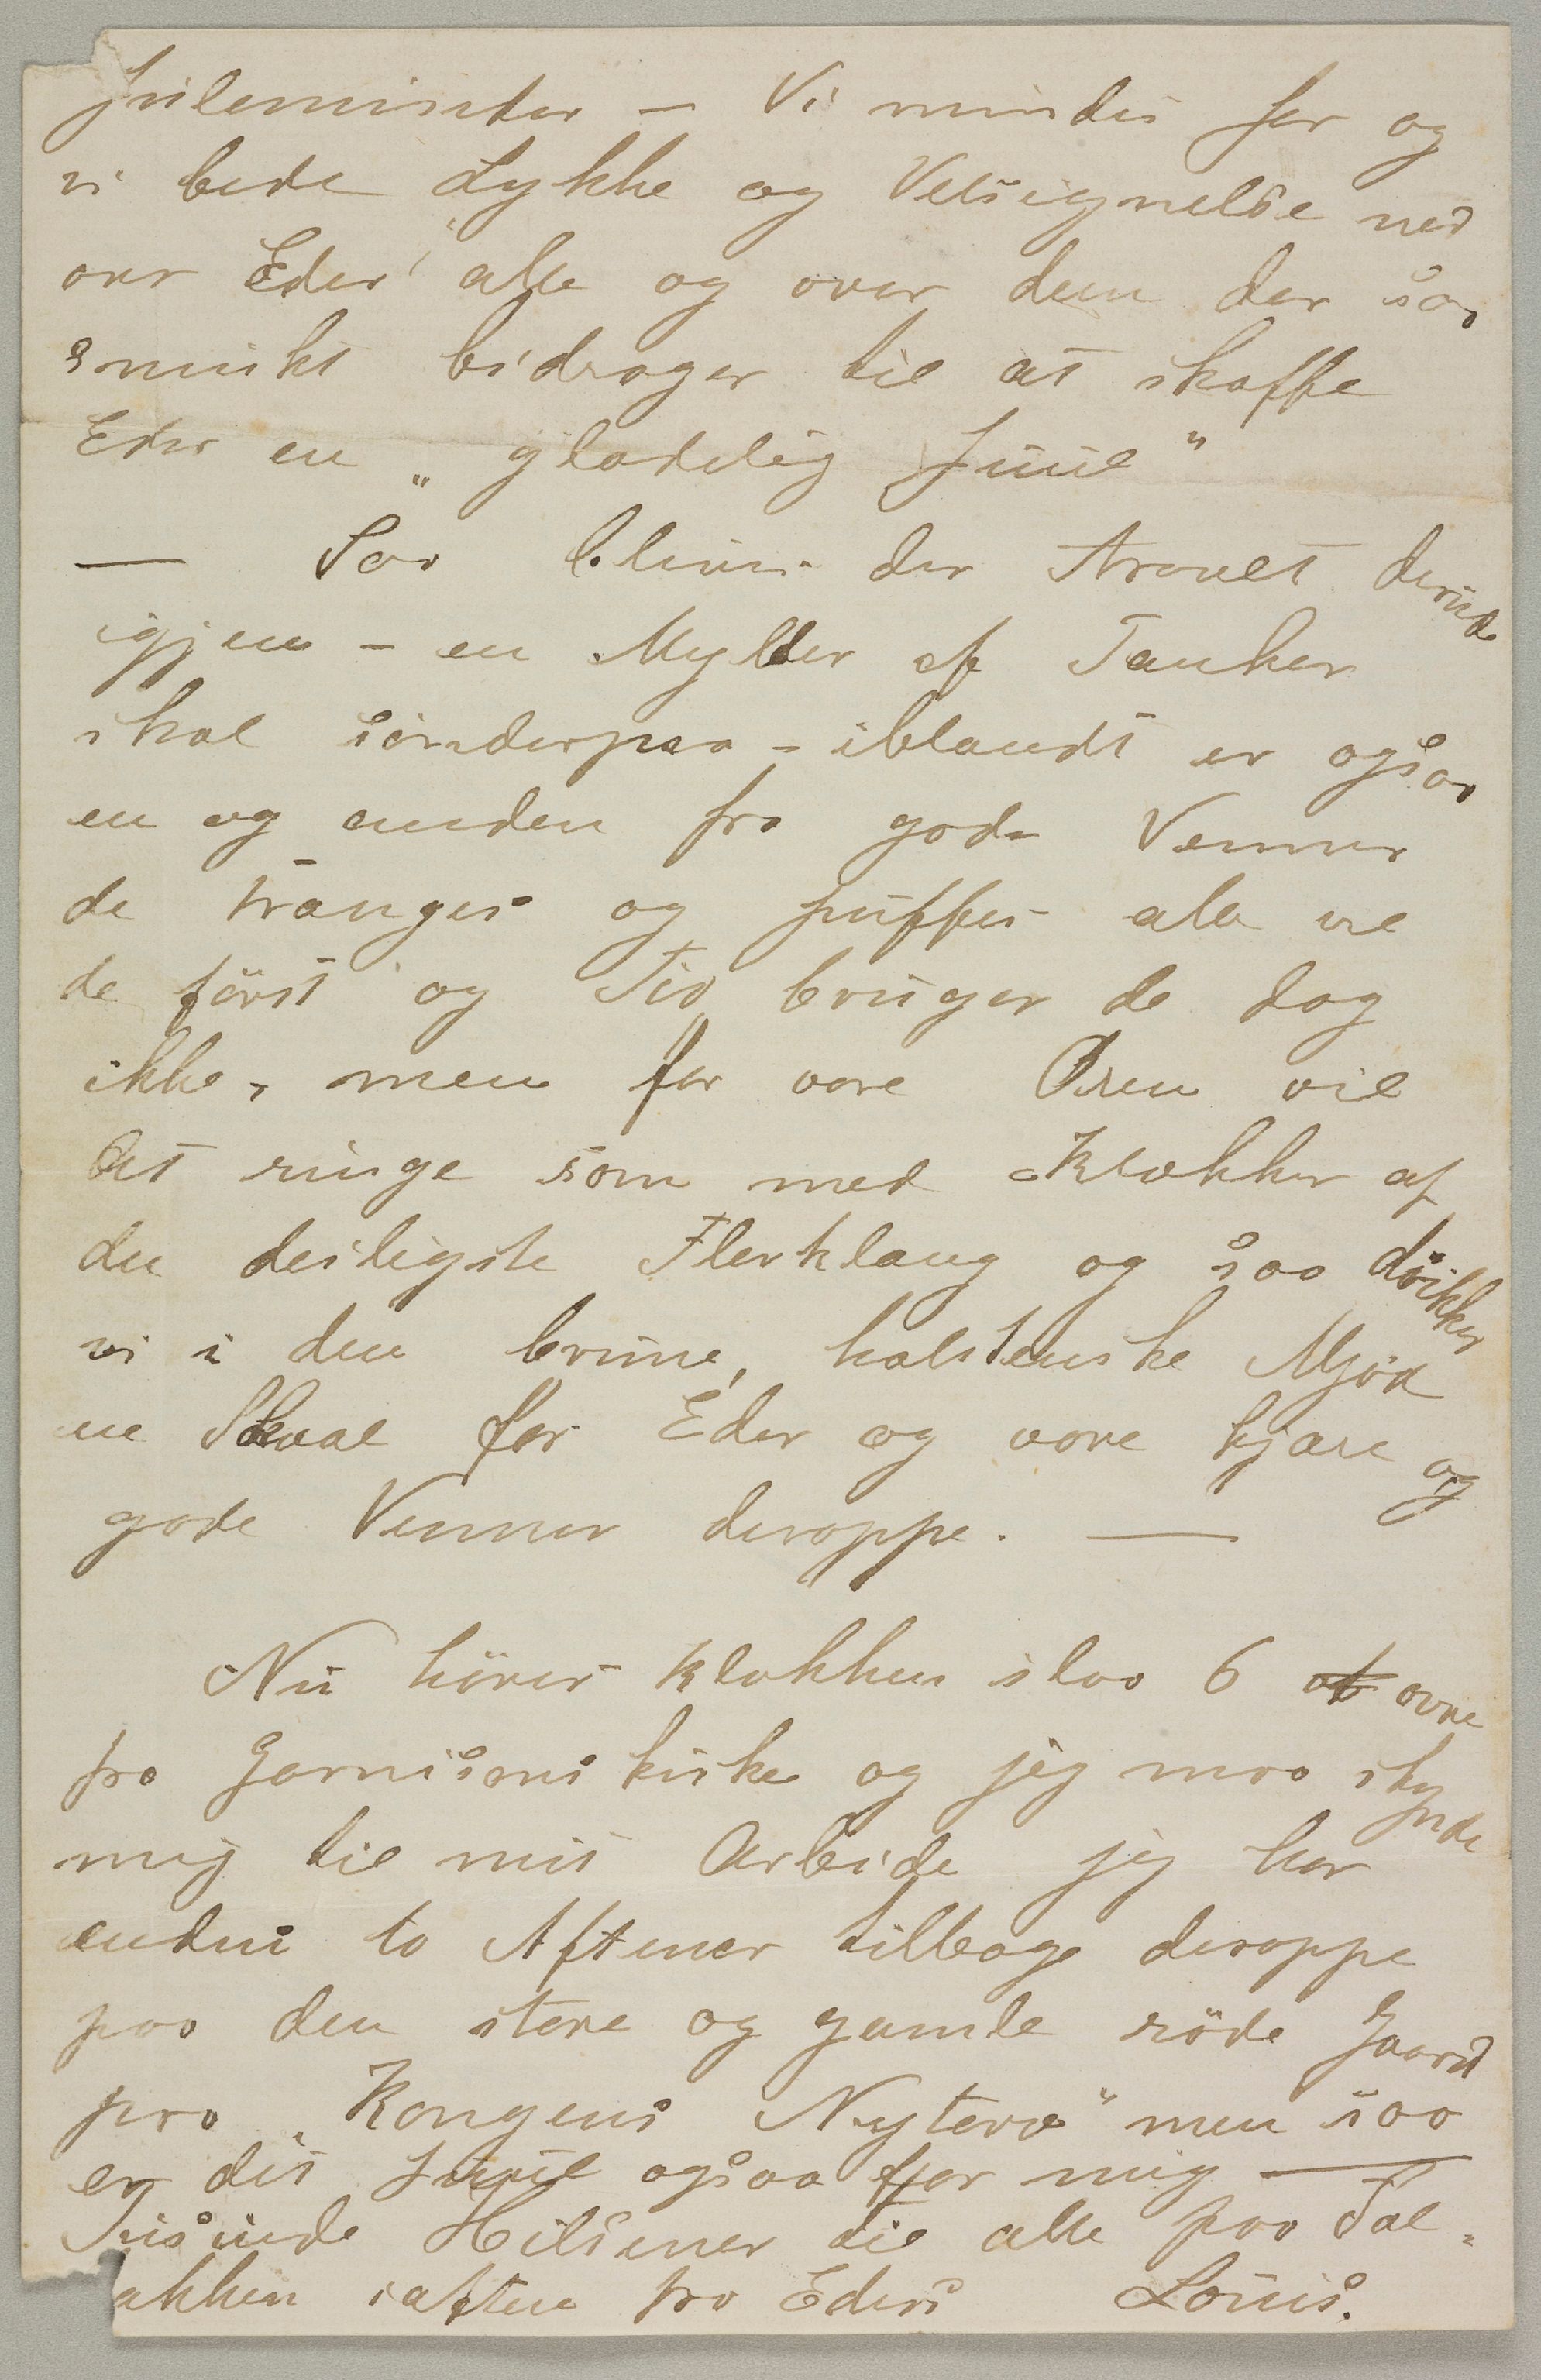 Juleminder – Vi mindes for og
vi bede Lykke og Velsignelse ned
over Eder alle og over dem der saa
smukt bidrager til at skaffe
Eder en „glædelig Juul"
— Saa bliver der Travelt derude
igjen – en Mylder af Tanker
skal sönderpaa – iblandt er ogsaa
en og anden fra gode Venner
de trænges og puffes alle vil
de först og Tid bruger de dog
ikke, men for vore Øren vil
det ringe som med Klokker af
den deiligste Flerklang og saa drikker
vi i den brune, holstenske Mjöd
en Skaal for Eder og vore kjære og
gode Venner deroppe. —
Nu höres Klokken slaa 6 ovre
fra Garnisons kirke og jeg maa skynde
mig til mit Arbeide jeg har
endnu to Aftener tilbage deroppe
paa den store og gamle röde Gaard
paa „Kongens Nytorv" men saa
er det Juul ogsaa for mig —
Tusinde Hilsener til alle paa Fal-
akken iaften fra Eders Louis.